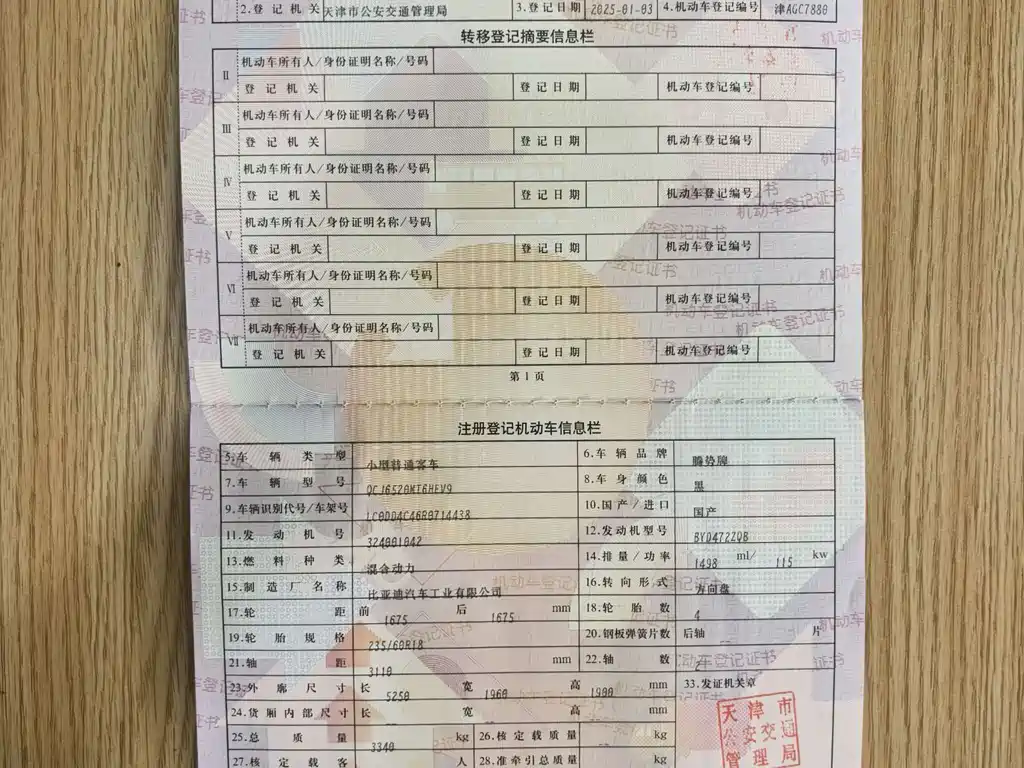 2.登记机关 天津市公安交通管理局 3.登记日期 2025-01-03 4.机动车登记编号 津AGC7880
转移登记摘要信息栏
Ⅱ 机动车所有人/身份证明名称/号码
登记机关 登记日期 机动车登记编号
Ⅲ 机动车所有人/身份证明名称/号码
登记机关 登记日期 机动车登记编号
Ⅳ 机动车所有人/身份证明名称/号码
登记机关 登记日期 机动车登记编号
Ⅴ 机动车所有人/身份证明名称/号码
登记机关 登记日期 机动车登记编号
Ⅵ 机动车所有人/身份证明名称/号码
登记机关 登记日期 机动车登记编号
Ⅶ 机动车所有人/身份证明名称/号码
登记机关 登记日期 机动车登记编号
第1页
注册登记机动车信息栏
5.车辆类型 小型普通客车 6.车辆品牌 腾势牌
7.车辆型号 QCJ6520MT6HEV9 8.车身颜色 黑
9.车辆识别代号/车架号 LC0DD4C46R0714438 10.国产/进口 国产
11.发动机号 324001042 12.发动机型号 BYD472ZQB
13.燃料种类 混合动力 14.排量/功率 1498 ml/ 115 kw
15.制造厂名称 比亚迪汽车工业有限公司 16.转向形式 方向盘
17.轮距 前 1675 后 1675 mm 18.轮胎数 4
19.轮胎规格 235/60R18 20.钢板弹簧片数 后轴 -- 片
21.轴距 3110 mm 22.轴数 2
23.外廓尺寸 长 5250 宽 1960 高 1900 mm 33.发证机关章
24.货厢内部尺寸 长 宽 高 mm
25.总质量 3340 kg 26.核定载质量 -- kg
27.核定载客 人 28.准牵引总质量 kg
天津市
公安交通
管理局